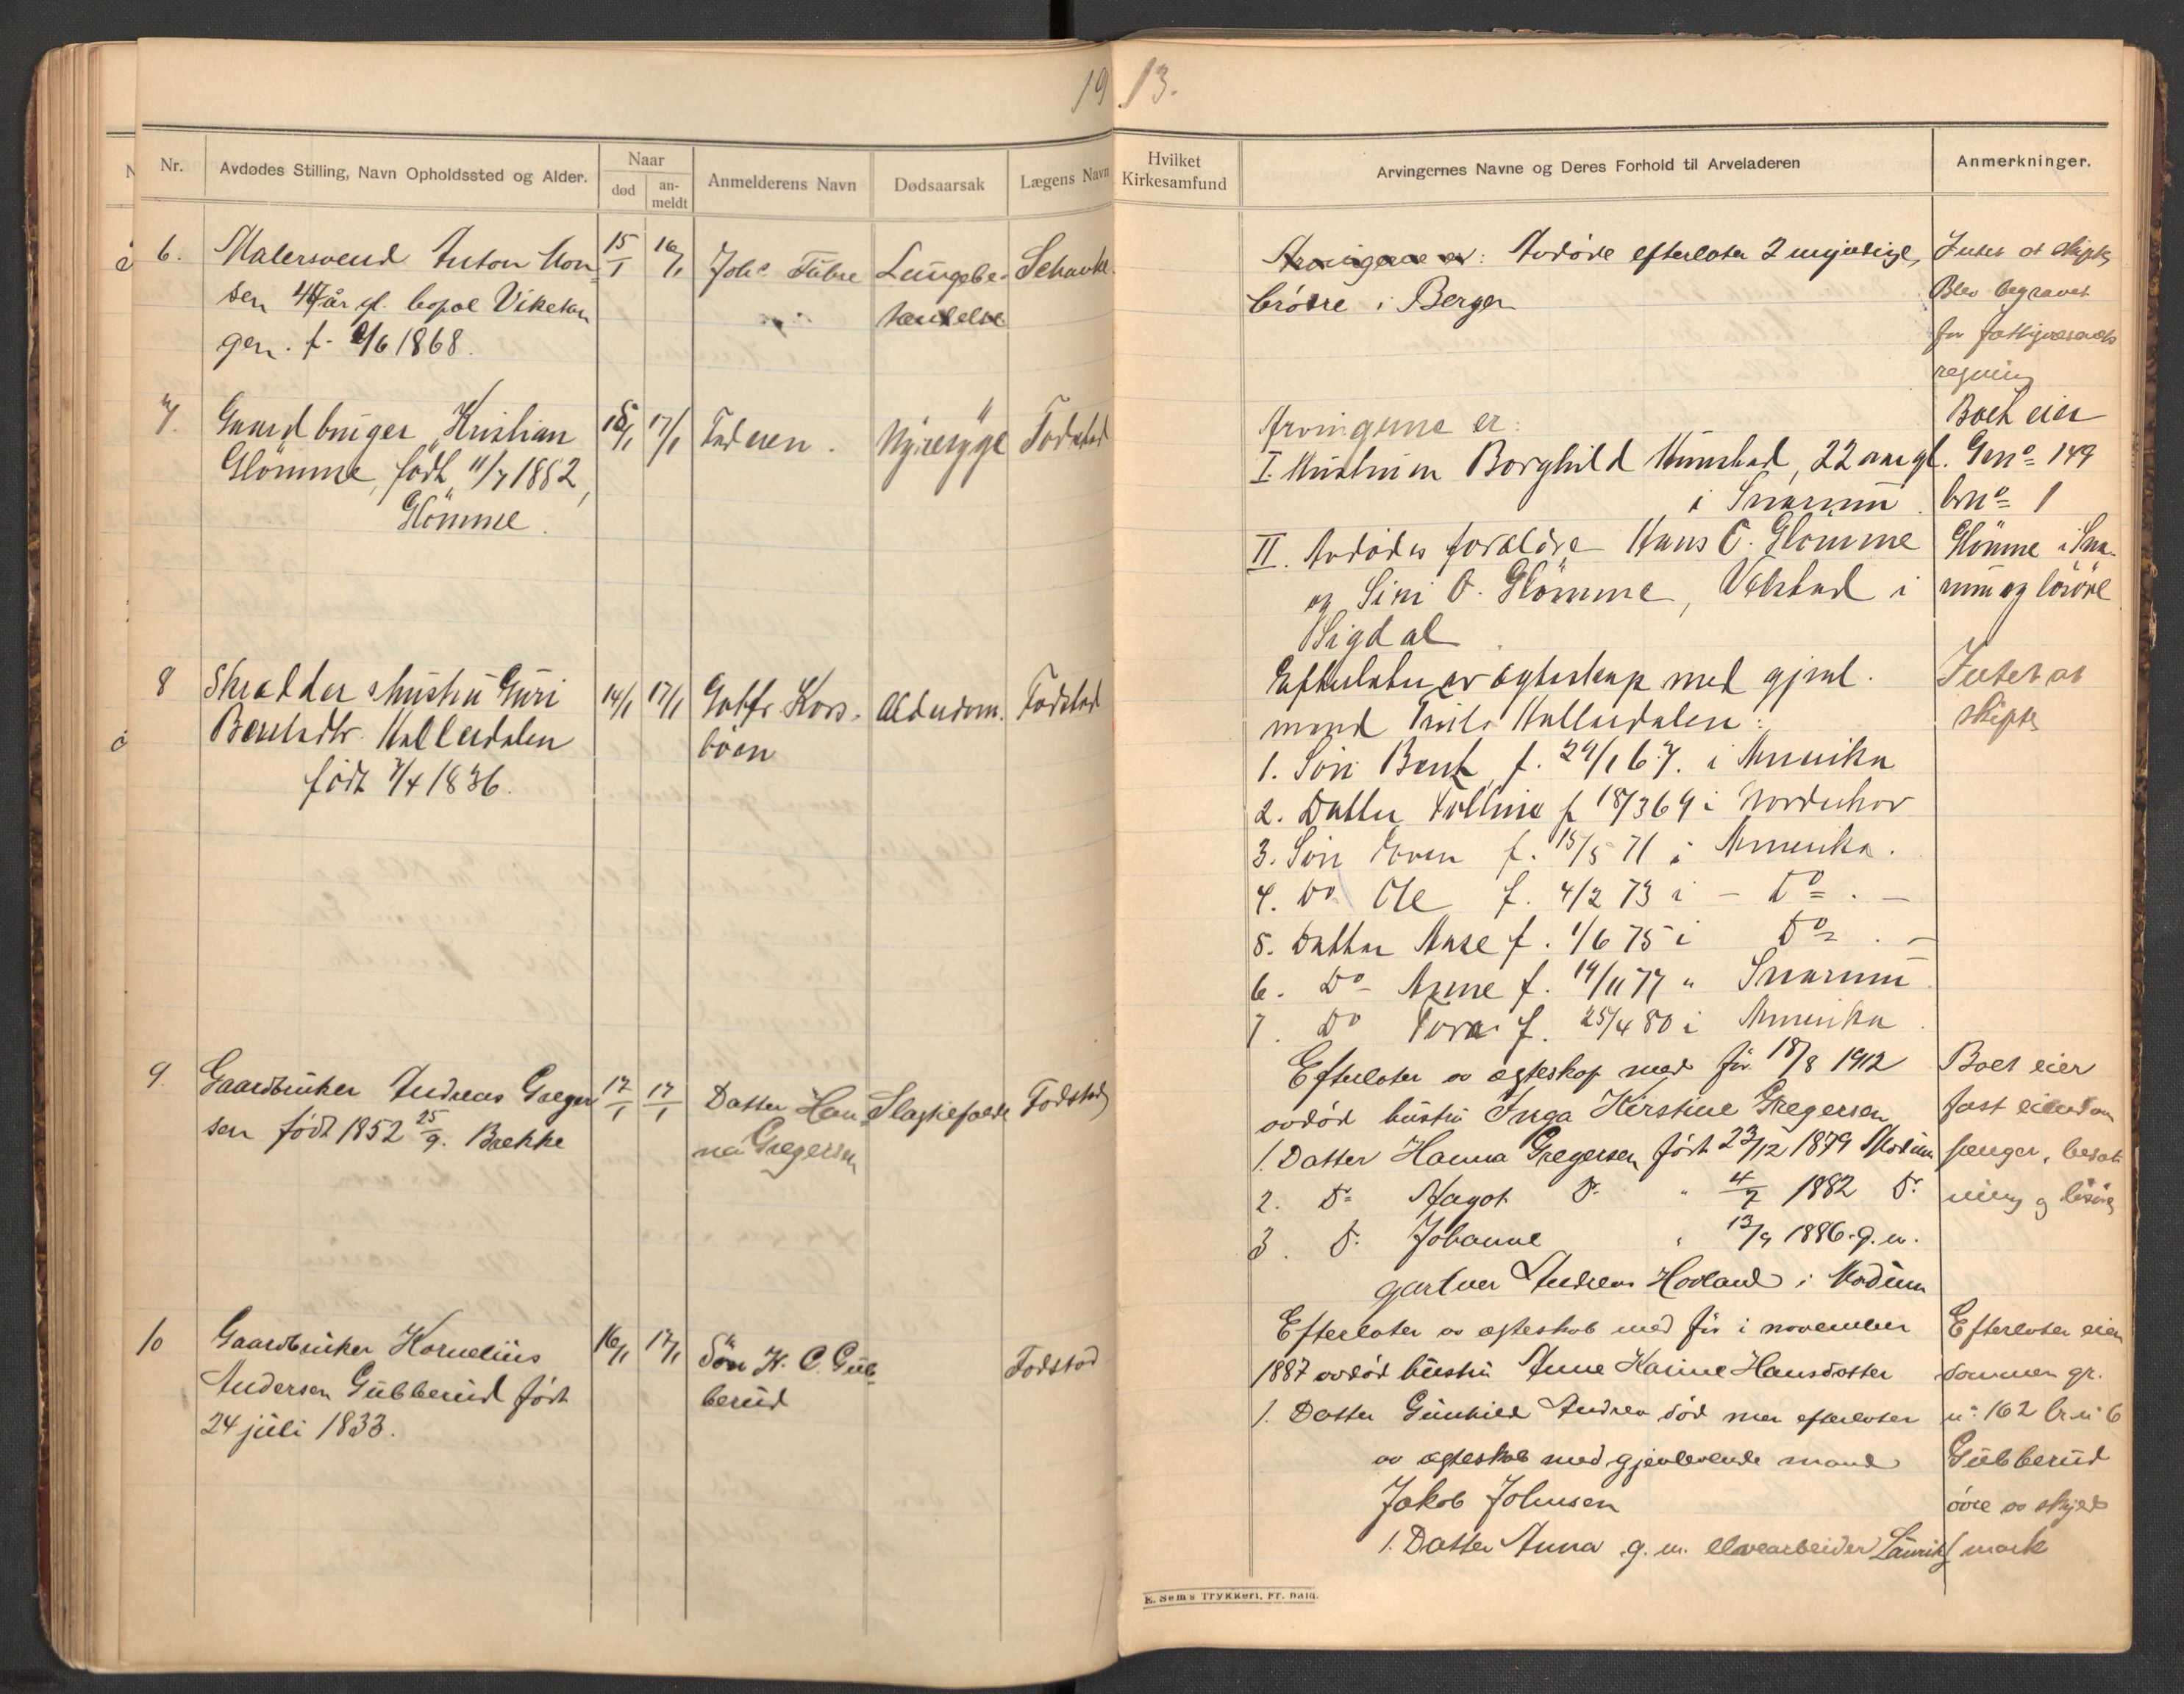 1913.
Nr.
Avdødes Stilling, Navn Opholdssted og Alder.
Naar
død
an-
meldt
Anmelderens Navn
Dødsaarsak
Lægens Navn
Hvilket
Kirkesamfund
Arvingernes Navne og Deres Forhold til Arveladeren
Anmerkninger.
6.
Malersvend Anton Mon
sen 44 år gl. bopæl Viketan
gen. f. 2/6 1868.
15/1
16/1
Johs Fúbre
Lungebe-
tændelse
Schanke.
Arvingerne er: Avdöde efterlater 2 myndige,
brödre i Bergen
Intet at skifte
Blev begravet
for fattigvæsenets
regning
7.
Gaardbruger Kristian
Glömme, född 11/7 1882,
Glömme.
15/1
17/1
Faderen.
Nyresyge
Fodstad
Arvingerne er:
I. Hustruen Borghild Hunstad, 22 aar gl.
i Snarum.
II. Avdödes forældre Hans O. Glömme
og Sini O. Glömme, Velstad i
Sigdal
Boet eier
Gno 149
brno 1
Glömme i Sna-
rum og lösöre
8
Skrædder hustru Guri
Bentsdtr. Hallesdalen
född 7/4 1836.
14/1
17/1
Gottfr. Kors-
böen
Alderdom.
Fodstad
Efterlater av ægteskap med gjenl.
mand Truls Hallesdalen:
1. Sön Bent f. 29/1 67. i Amerika
2. Datter Tolline f 18/3 69 i Norderhov
3. Sön Even f. 15/5 71 i Amerika.
4. Do Ole f. 4/2 73 i - Do. -
5. Datter Aase f. 1/6 75 i Do. -
6. Do Anne f. 19/11 77 " Snarum
7. Do Tora f. 25/4 80 i Amerika
Intet at
skifte
9.
Gaardbruker Andreas Greger
sen född 1852 25/9. Brekke
17/1
17/1
Datter Han
na Gregersen
Slagtilfælde
Fodstad
Efterlater av ægteskap med för 18/8 1912
avdöd hustru Inga Kirstine Gregersen
1. Datter Hanna Gregersen född 23/12 1879 Modum
2. Do Hagot Do " 4/7 1882 Do
3. Do Johanne " 13/9 1886. g.m.
gartner Andreas Hovland i Modum
Boet eier
fast eiendom
penger, besæt
ning og lösöre
10
Gaardbruker Kornelius
Andersen Gubberud född
24 juli 1833.
16/1
17/1
Sön K. C. Gub
berud
Fodstad
Efterlater av ægteskab med för i november
1887 avdöd hustru Anne Karine Hansdatter
1. Datter Gunhild Andrea död men efterlater
av ægteskab med gjenlevende mand
Jakob Johnsen
1. Datter Anna g.m. elvearbeider Lauritz
Efterlater eien
dommen gr.
no 162 br. no 6
Gubberud
övre av skyld
mark
E. Sems Trykkeri, Fr. hald.